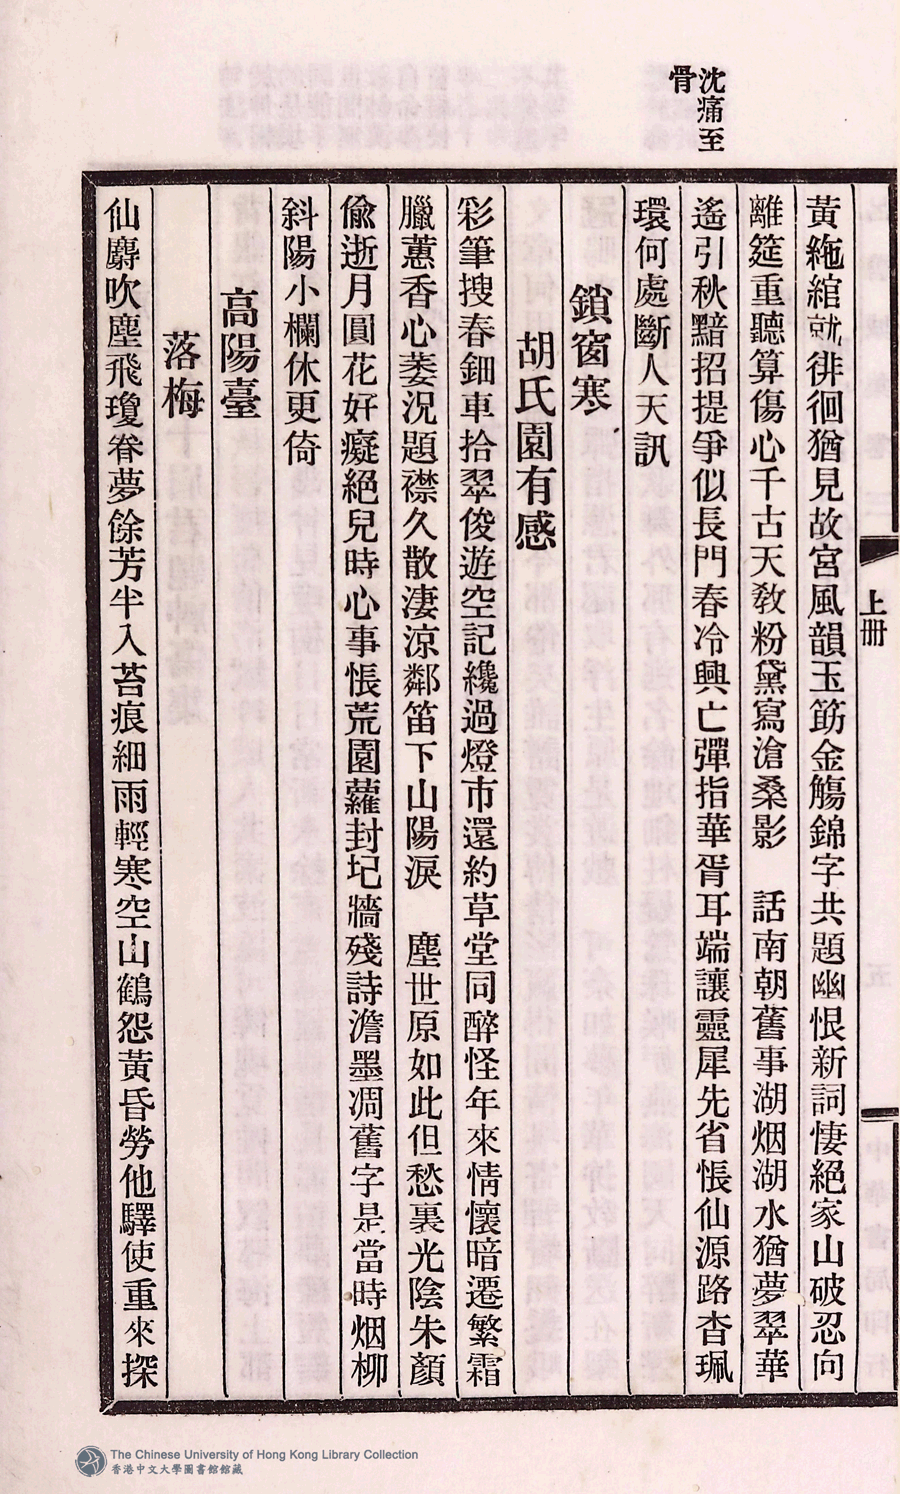 沈痛至
骨
黃絁綰就徘徊猶見故宮風韻玉筯金觴錦字共題幽恨新詞悽絕家山破忍向
離筵重聽算傷心千古天敎粉黛寫滄桑影　話南朝舊事湖烟湖水猶夢翠華
遙引秋黯招提爭似長門春冷興亡彈指華胥耳端讓靈犀先省悵仙源路杳珮
環何處斷人天訊
鎖窗寒
胡氏園有感
彩筆搜春鈿車拾翠俊遊空記纔過燈市還約草堂同醉怪年來情懷暗遷繁霜
臘蕙香心萎況題襟久散淒涼鄰笛下山陽淚　塵世原如此但愁裏光陰朱顏
偸逝月圓花好癡絕兒時心事悵荒園蘿封圮牆殘詩澹墨凋舊字是當時烟柳
斜陽小欄休更倚
高陽臺
落梅
仙麝吹塵飛瓊眷夢餘芳半入苔痕細雨輕寒空山鶴怨黃昏勞他驛使重來探
上冊
The Chinese University of Hong Kong Library Collection
香港中文大學圖書館館藏